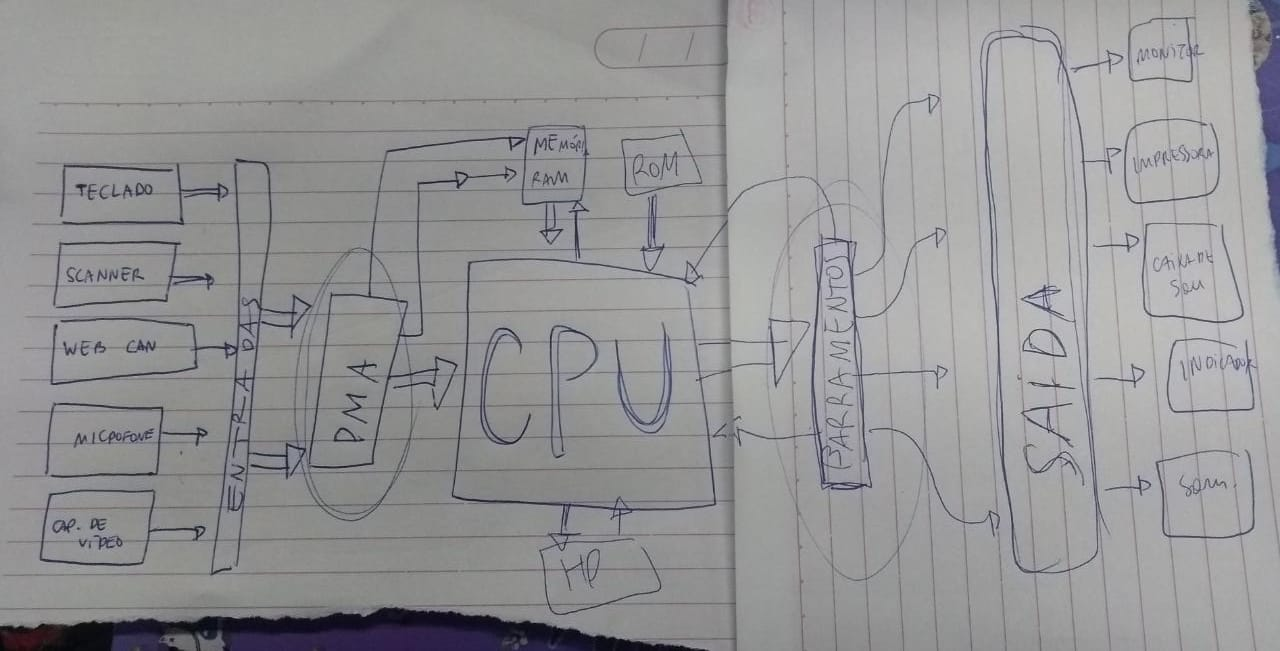 TECLADO
SCANNER
WEB CAN
MICROFONE
CAP. DE
VÍDEO
ENTRADAS
DMA
MEMÓRI
RAM
ROM
CPU
HD
BARRAMENTOS
SAIDA
MONITOR
IMPRESSORA
CAIXA DE
SOM
INDICADOR
SOM.